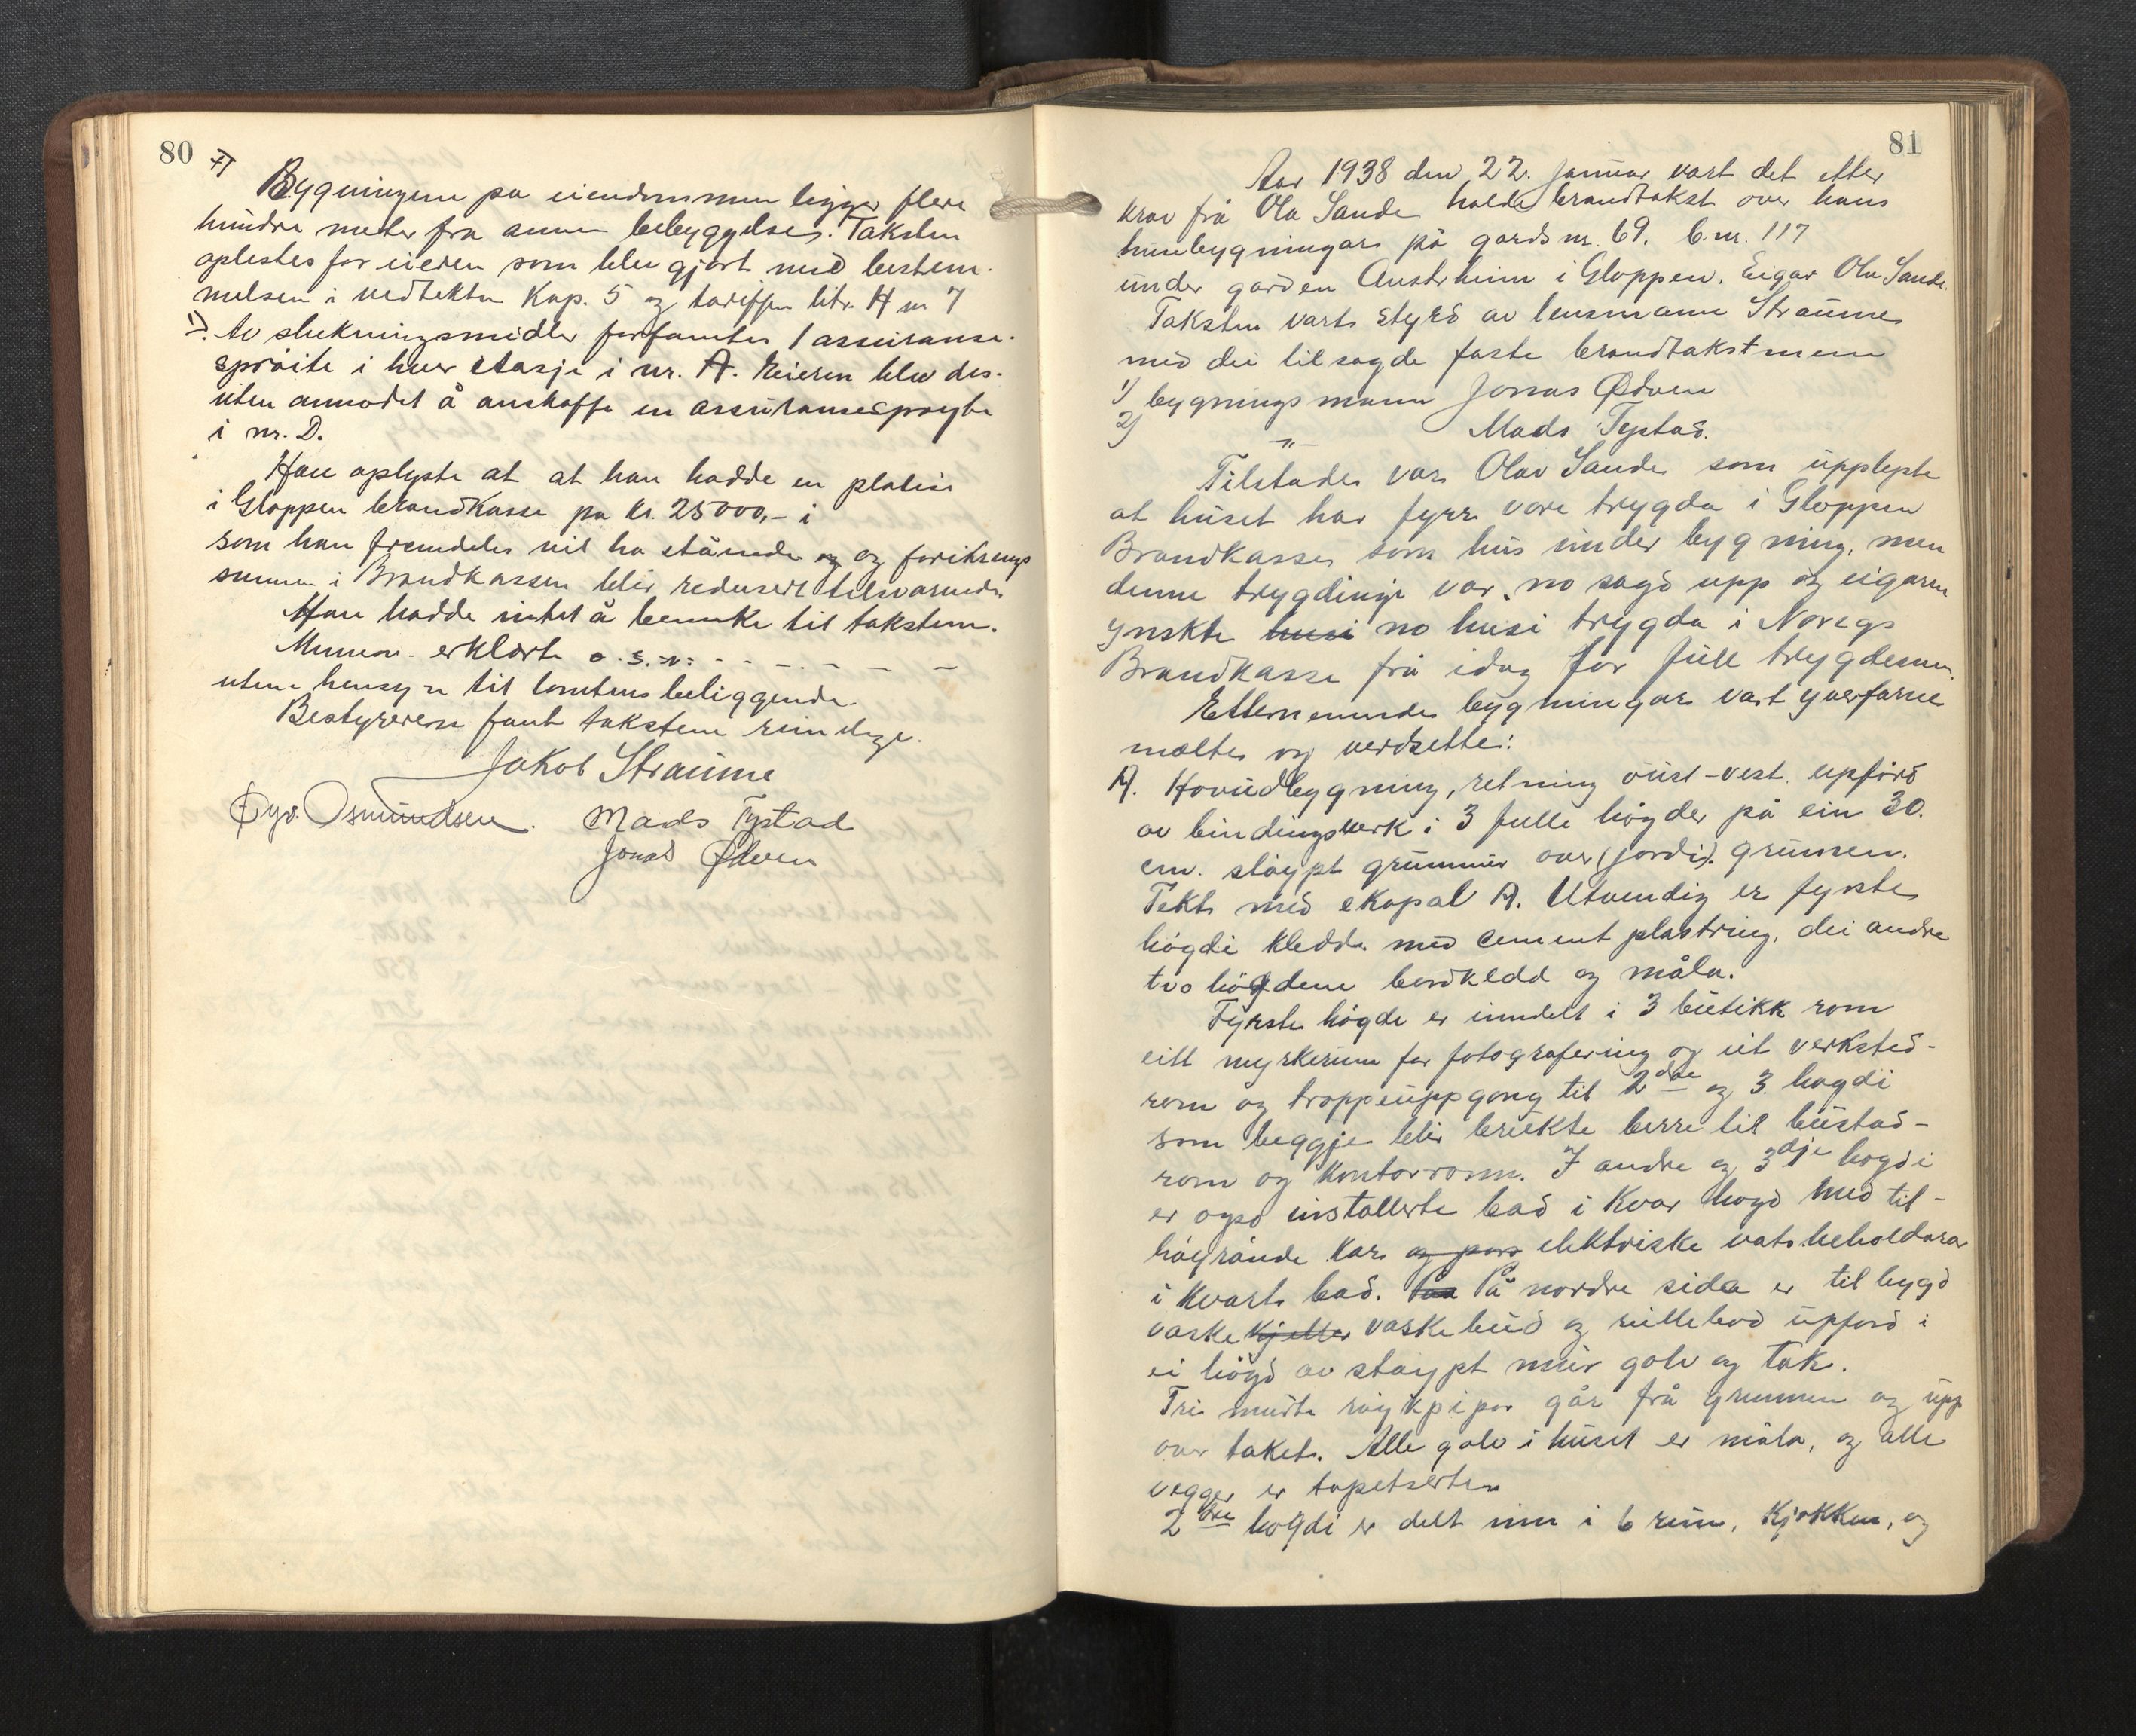 80
7) Bygningene på eiendommen ligger flere
hundre meter fra annen bebyggelse. Taksten
oplestes for eieren som blev gjort med bestem-
melsen i vedtektene Kap. 5 og tariffen litr. H nr 7
1). Av slukningsmidler forfantes 1 assuranse-
sprøite i hver etasje i nr. A. Eieren blev des-
uten anmodet å anskaffe en assuransesprøyte
i nr. D.
Han oplyste at at han hadde en polise
i Gloppen brandkasse på kr. 25000,- i
som han fremdeles vil ha stående og og forikrings
summen i Brandkassen blir redusert tilsvarende.
Han hadde intet å bemerke til taksten.
Mennene erklærte o.s.v: - - - - - - -
uten hensyn til tomtens beliggende.
Bestyreren fant taksten rimelige.
Jakob Straume
Øyv. Osmundsen. Mads Tystad
Jonas Ødven
81
Aar 1938 den 22. januar vart det etter
krav frå Ola Sande halde brandtakst over hans
husebygningar på gards nr. 69. b.nr. 117
under garden Austrheim i Gloppen. Eigar Ola Sande.
Taksten vart styrd av lensmann Straume
med dei tilsagde faste brandtakstmenn
1) bygningsmann Jonas Ødven
2) -"- Mads Tystad.
Tilstades var Olav Sande som upplyste
at huset har fyrr vore trygda i Gloppen
Brandkasse som hus under bygning, men
denne trygdinge var no sagd upp og eigaren
ynskte husi no husi trygda i Noregs
Brandkasse frå idag for full trygdesum.
Etternemnde bygningar vart yverfarne
mælte og verdsette:
A. Hovudbygning, retning aust-vest. uppførd
av bindingsverk i 3 fulle høgder på ein 30.
cm. støypt grunnmur over (jordi). grunnen.
Tekt med skapal A. Utvendig er fyrste
høgdi kledde med cement plastring, dei andre
tvo høgdene bordkledd og måla.
Fyrste høgde er inndelt i 3 butikk rom
eitt myrkerum for fotografering og eit verksted-
rom og troppeuppgong til 2dre og 3. høgdi
som beggje blir brukte berre til bustad-
rom og kontorrom. I andre og 3dje høgdi
er også installerte bad i kvar høgd med til-
høyrande kar og par elektriske vatsbeholdarar
i kvart bad. På nordre sida er tilbygd
vaske kjeller vaskebud og rullebod uppførd i
ei høgd av støypt mur golv og tak.
Tri murte røykpipor går frå grunnen og upp
over taket. Alle golv i huset er måla, og alle
vegger er tapetserte.
2dre høgdi er delt inn i 6 rum, kjøkken, og